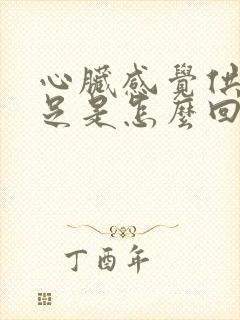 心臟感覺供
足是怎麼回
丁酉年